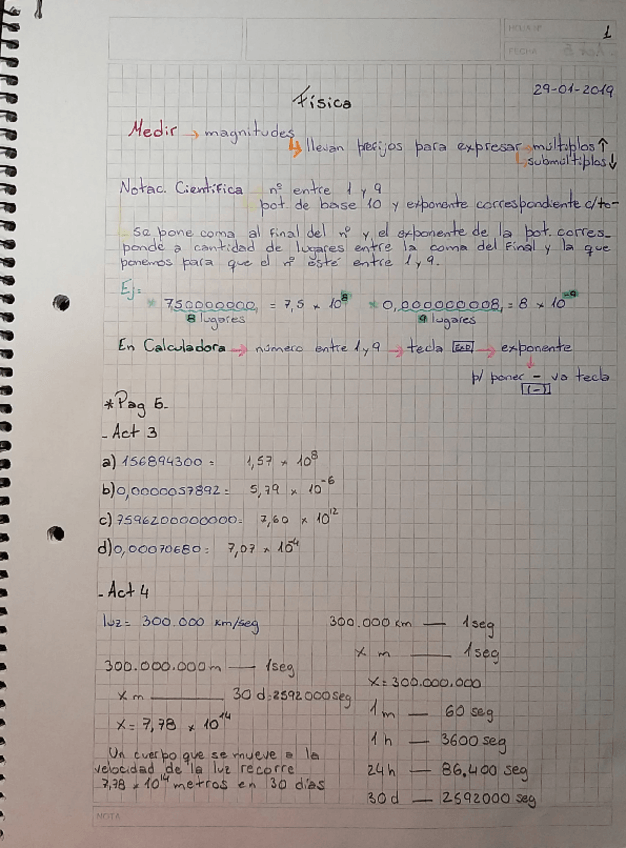 1
FECHA
29-01-2019
Física
Medir → magnitudes
↳ llevan prefijos para expresar → múltiplos ↑
↳ submúltiplos ↓
Notac. Científica nº entre 1 y 9
pot. de base 10 y exponente correspondiente c/to-
Se pone coma al final del nº y el exponente de la pot. corres-
ponde a cantidad de lugares entre la coma del final y la que
ponemos para que el nº esté entre 1 y 9.
Ej:
* 750000000, = 7,5 × 10⁸ * 0,000000008, = 8 × 10⁻⁹
8 lugares 9 lugares
En Calculadora → número entre 1 y 9 → tecla EXP → exponente
↓
p/ poner - va tecla
(-)
* Pag 5-
- Act 3
a) 156894300 = 1,57 × 10⁸
b) 0,0000057892 = 5,79 × 10⁻⁶
c) 7596200000000 = 7,60 × 10¹²
d) 0,00070680 = 7,07 × 10⁻⁴
- Act 4
luz = 300.000 km/seg
300.000.000 m — 1seg
x m — 30 d = 2592000 seg
x = 7,78 × 10¹⁴
Un cuerpo que se mueve a la
velocidad de la luz recorre
7,78 × 10¹⁴ metros en 30 días
300.000 km — 1 seg
x m — 1 seg
x = 300.000.000
1 m — 60 seg
1 h — 3600 seg
24 h — 86.400 seg
30 d — 2592000 seg
NOTA